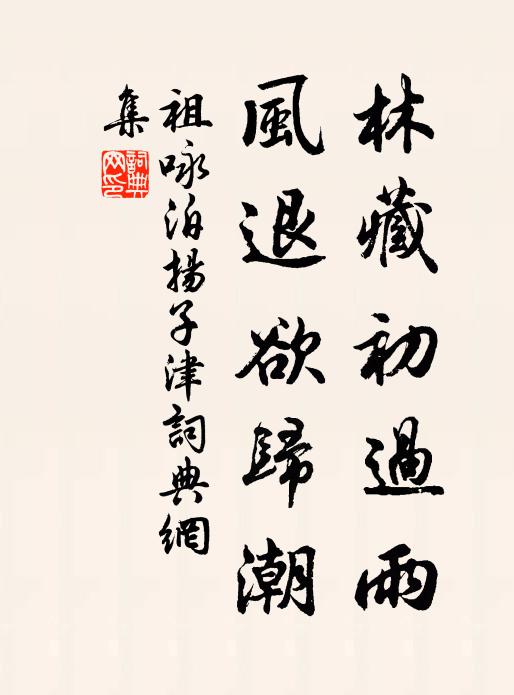 林藏初過雨
風退欲歸潮
祖咏泊揚子津詞典網
集
詞典
网印